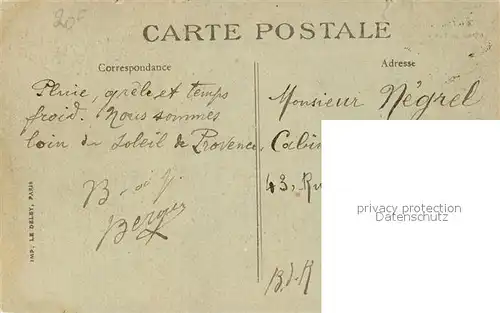 20F
CARTE POSTALE
Correspondance
Adresse
Pluie, grêle et temps
froid. Nous sommes
loin du soleil de Provence.
Berger
Monsieur Négrel
Cabin
43, Ru
B-d-R
IMP. LE DELEY, PARIS
privacy protection
Datenschutz